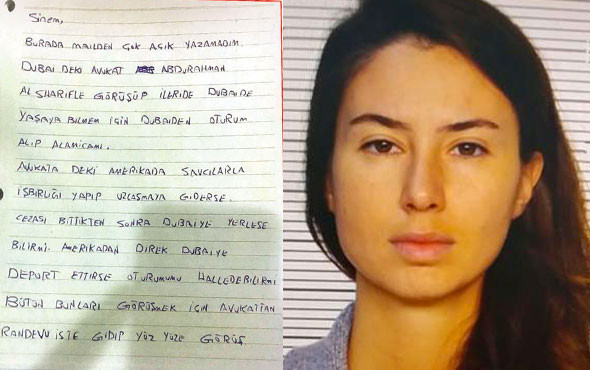 Sinem,
BURADA MAILDEN ÇOK AÇIK YAZAMADIM.
DUBAI DEKI AVUKAT ABDURAHMAN
AL SHARIFLE GÖRÜŞÜP İLERIDE DUBAIDE
YAŞAYA BILMEM IÇIN DUBAIDEN OTURUM
ALIP ALAMICAMI.
AVUKATA DEKI AMERIKADA SAVCILARLA
IŞBIRLIĞI YAPIP UZLAŞMAYA GIDERSE.
CEZASI BITTIKTEN SONRA DUBAIYE YERLEŞE
BILIRMI. AMERIKADAN DIREK DUBAIYE
DEPORT ETTIRSE OTURUMUMU HALLEDEBILIRMI
BÜTÜN BUNLARI GÖRÜŞMEK IÇIN AVUKATTAN
RANDEVU ISTE GIDIP YÜZ YÜZE GÖRÜŞ